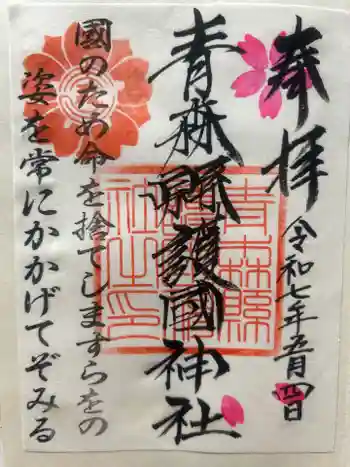 奉拝
令和七年五月四日
青森縣護國神社
國のため命を捨てしますらをの
姿を常にかかげてぞみる
青森縣護國神社之印